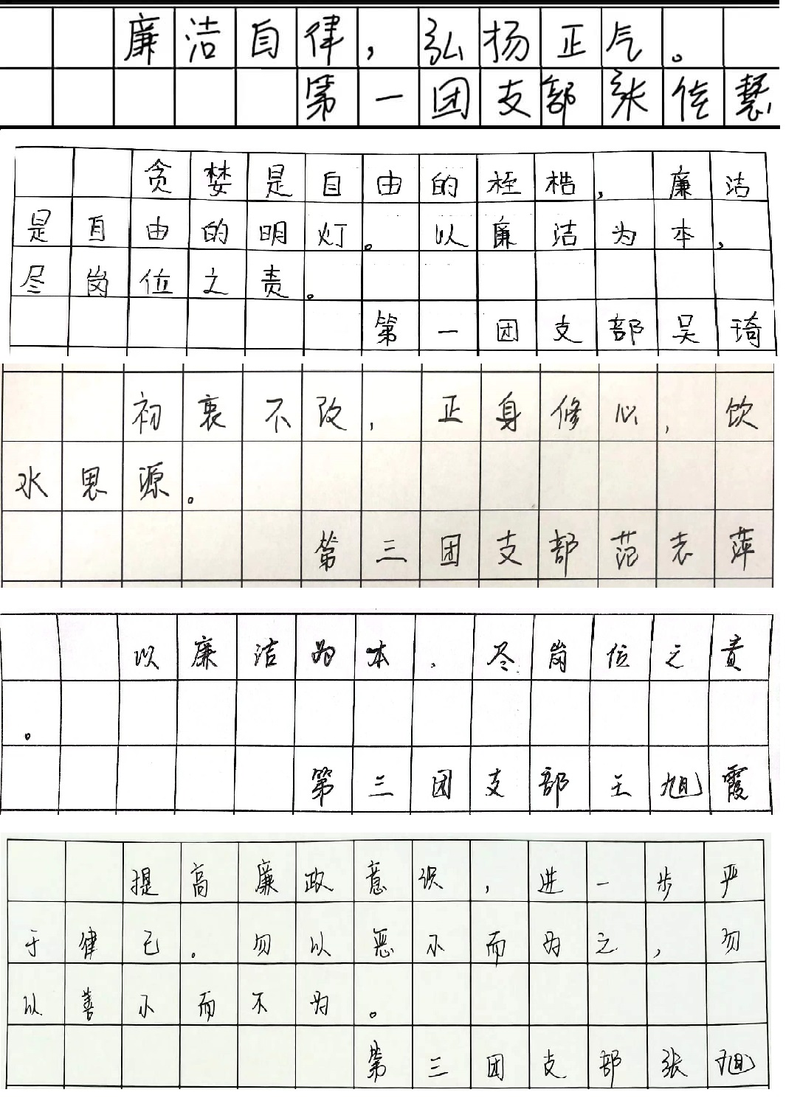 廉洁自律，弘扬正气。
第一团支部张佳慧
贪婪是自由的桎梏，廉洁
是自由的明灯。以廉洁为本，
尽岗位之责。
第一团支部吴琦
初衷不改，正身修心，饮
水思源。
第三团支部范志萍
以廉洁为本，尽岗位之责
。
第三团支部王旭霞
提高廉政意识，进一步严
于律己。勿以恶小而为之，勿
以善小而不为。
第三团支部张旭